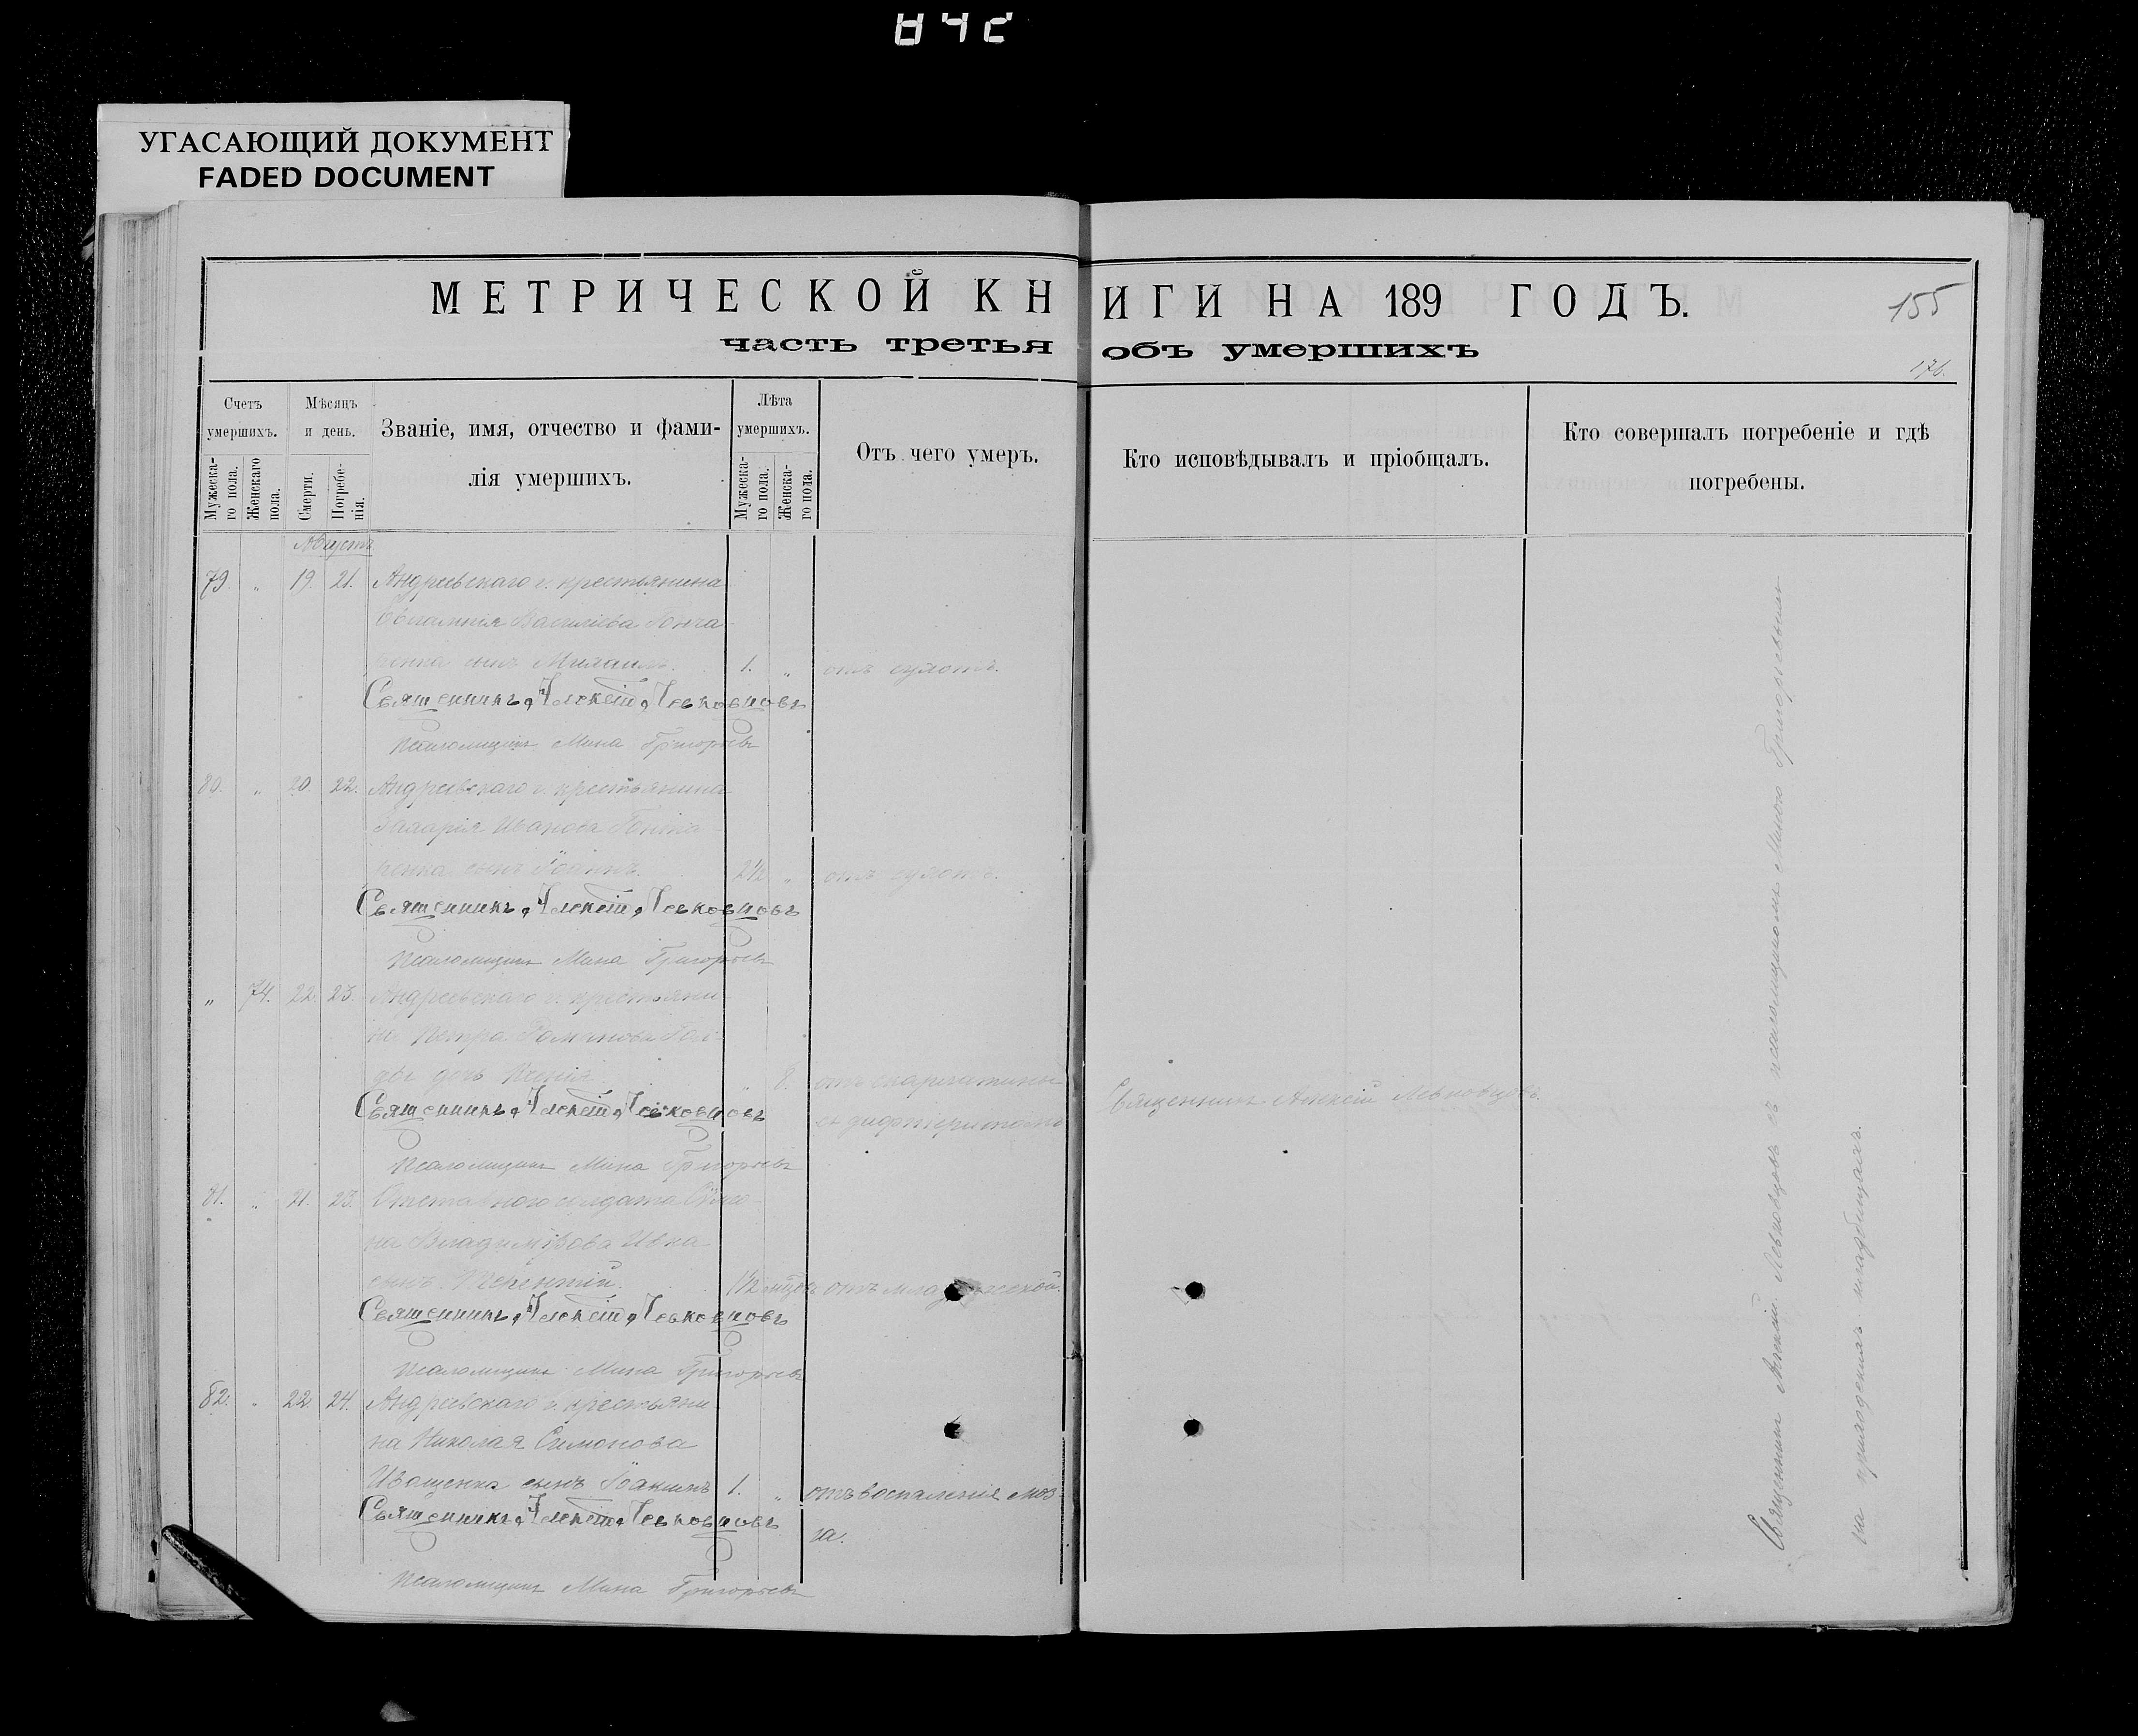 842
УГАСАЮЩИЙ ДОКУМЕНТ
FADED DOCUMENT
МЕТРИЧЕСКОЙ КНИГИ НА 189 ГОДЪ.
155
часть третья объ умершихъ
176.
Счетъ умершихъ.
Мужеска-го пола.
Женскаго пола.
Мѣсяцъ и день.
Смерти.
Погребе-нія.
Званіе, имя, отчество и фами-
лія умершихъ.
Лѣта умершихъ.
Мужеска-го пола.
Женска-го пола.
Отъ чего умеръ.
Кто исповѣдывалъ и пріобщалъ.
Кто совершалъ погребеніе и гдѣ
погребены.
Августъ
79. " 19. 21. Андреевскаго г. крестьянина
Василіева Гонча-
ренка сынъ Михаилъ. 1. "
Священникъ Алексій Левковцовъ
Псаломщикъ Мина Григорьевъ
80. " 20. 22. Андреевскаго г. крестьянина
Захарія Иванова Гонча-
ренка сынъ Іоаннъ. 2½ "
Священникъ Алексій Левковцовъ
Псаломщикъ Мина Григорьевъ
" 74. 22. 23. Андреевскаго г. крестьяни-
на Петра
дочь " 8. отъ скарлатины
Священникъ Алексій Левковцовъ
съ дифтеритомъ
Священникъ Алексій Левковцовъ.
Псаломщикъ Мина Григорьевъ
81. " 21. 23. Отставного солдата
на Владимірова Ивка
сынъ Терентій. 1/2 отъ младенческой.
Священникъ Алексій Левковцовъ
Псаломщикъ Мина Григорьевъ
82. " 22. 24. Андреевскаго г. крестьяни-
на Николая Симонова
Иващенка сынъ Іоакимъ 1. " отъ воспаленія моз-
Священникъ Алексій Левковцовъ
га.
Псаломщикъ Мина Григорьевъ
Священникъ Алексій Левковцовъ съ псаломщикомъ Миною Григорьевымъ
на приходскихъ кладбищахъ.